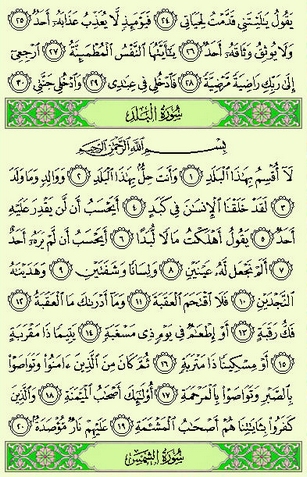 يَقُولُ يَٰلَيْتَنِي قَدَّمْتُ لِحَيَاتِي ٢٤ فَيَوْمَئِذٍ لَّا يُعَذِّبُ عَذَابَهُۥٓ أَحَدٌ ٢٥
وَلَا يُوثِقُ وَثَاقَهُۥٓ أَحَدٌ ٢٦ يَٰٓأَيَّتُهَا ٱلنَّفْسُ ٱلْمُطْمَئِنَّةُ ٢٧ ٱرْجِعِىٓ
إِلَىٰ رَبِّكِ رَاضِيَةً مَّرْضِيَّةً ٢٨ فَٱدْخُلِى فِى عِبَٰدِى ٢٩ وَٱدْخُلِى جَنَّتِى ٣٠
سُورَةُ ٱلْبَلَدِ
بِسْمِ ٱللَّهِ ٱلرَّحْمَٰنِ ٱلرَّحِيمِ
لَآ أُقْسِمُ بِهَٰذَا ٱلْبَلَدِ ١ وَأَنتَ حِلٌّۢ بِهَٰذَا ٱلْبَلَدِ ٢ وَوَالِدٍ وَمَا وَلَدَ
٣ لَقَدْ خَلَقْنَا ٱلْإِنسَٰنَ فِى كَبَدٍ ٤ أَيَحْسَبُ أَن لَّن يَقْدِرَ عَلَيْهِ
أَحَدٌ ٥ يَقُولُ أَهْلَكْتُ مَالًا لُّبَدًا ٦ أَيَحْسَبُ أَن لَّمْ يَرَهُۥٓ أَحَدٌ
٧ أَلَمْ نَجْعَل لَّهُۥ عَيْنَيْنِ ٨ وَلِسَانًا وَشَفَتَيْنِ ٩ وَهَدَيْنَٰهُ
ٱلنَّجْدَيْنِ ١٠ فَلَا ٱقْتَحَمَ ٱلْعَقَبَةَ ١١ وَمَآ أَدْرَىٰكَ مَا ٱلْعَقَبَةُ ١٢
فَكُّ رَقَبَةٍ ١٣ أَوْ إِطْعَٰمٌ فِى يَوْمٍ ذِى مَسْغَبَةٍ ١٤ يَتِيمًا ذَا مَقْرَبَةٍ
١٥ أَوْ مِسْكِينًا ذَا مَتْرَبَةٍ ١٦ ثُمَّ كَانَ مِنَ ٱلَّذِينَ ءَامَنُوا۟ وَتَوَاصَوْا۟
بِٱلصَّبْرِ وَتَوَاصَوْا۟ بِٱلْمَرْحَمَةِ ١٧ أُو۟لَٰٓئِكَ أَصْحَٰبُ ٱلْمَيْمَنَةِ ١٨ وَٱلَّذِينَ
كَفَرُوا۟ بِـَٔايَٰتِنَا هُمْ أَصْحَٰبُ ٱلْمَشْـَٔمَةِ ١٩ عَلَيْهِمْ نَارٌ مُّؤْصَدَةٌۢ ٢٠
سُورَةُ ٱلشَّمْسِ